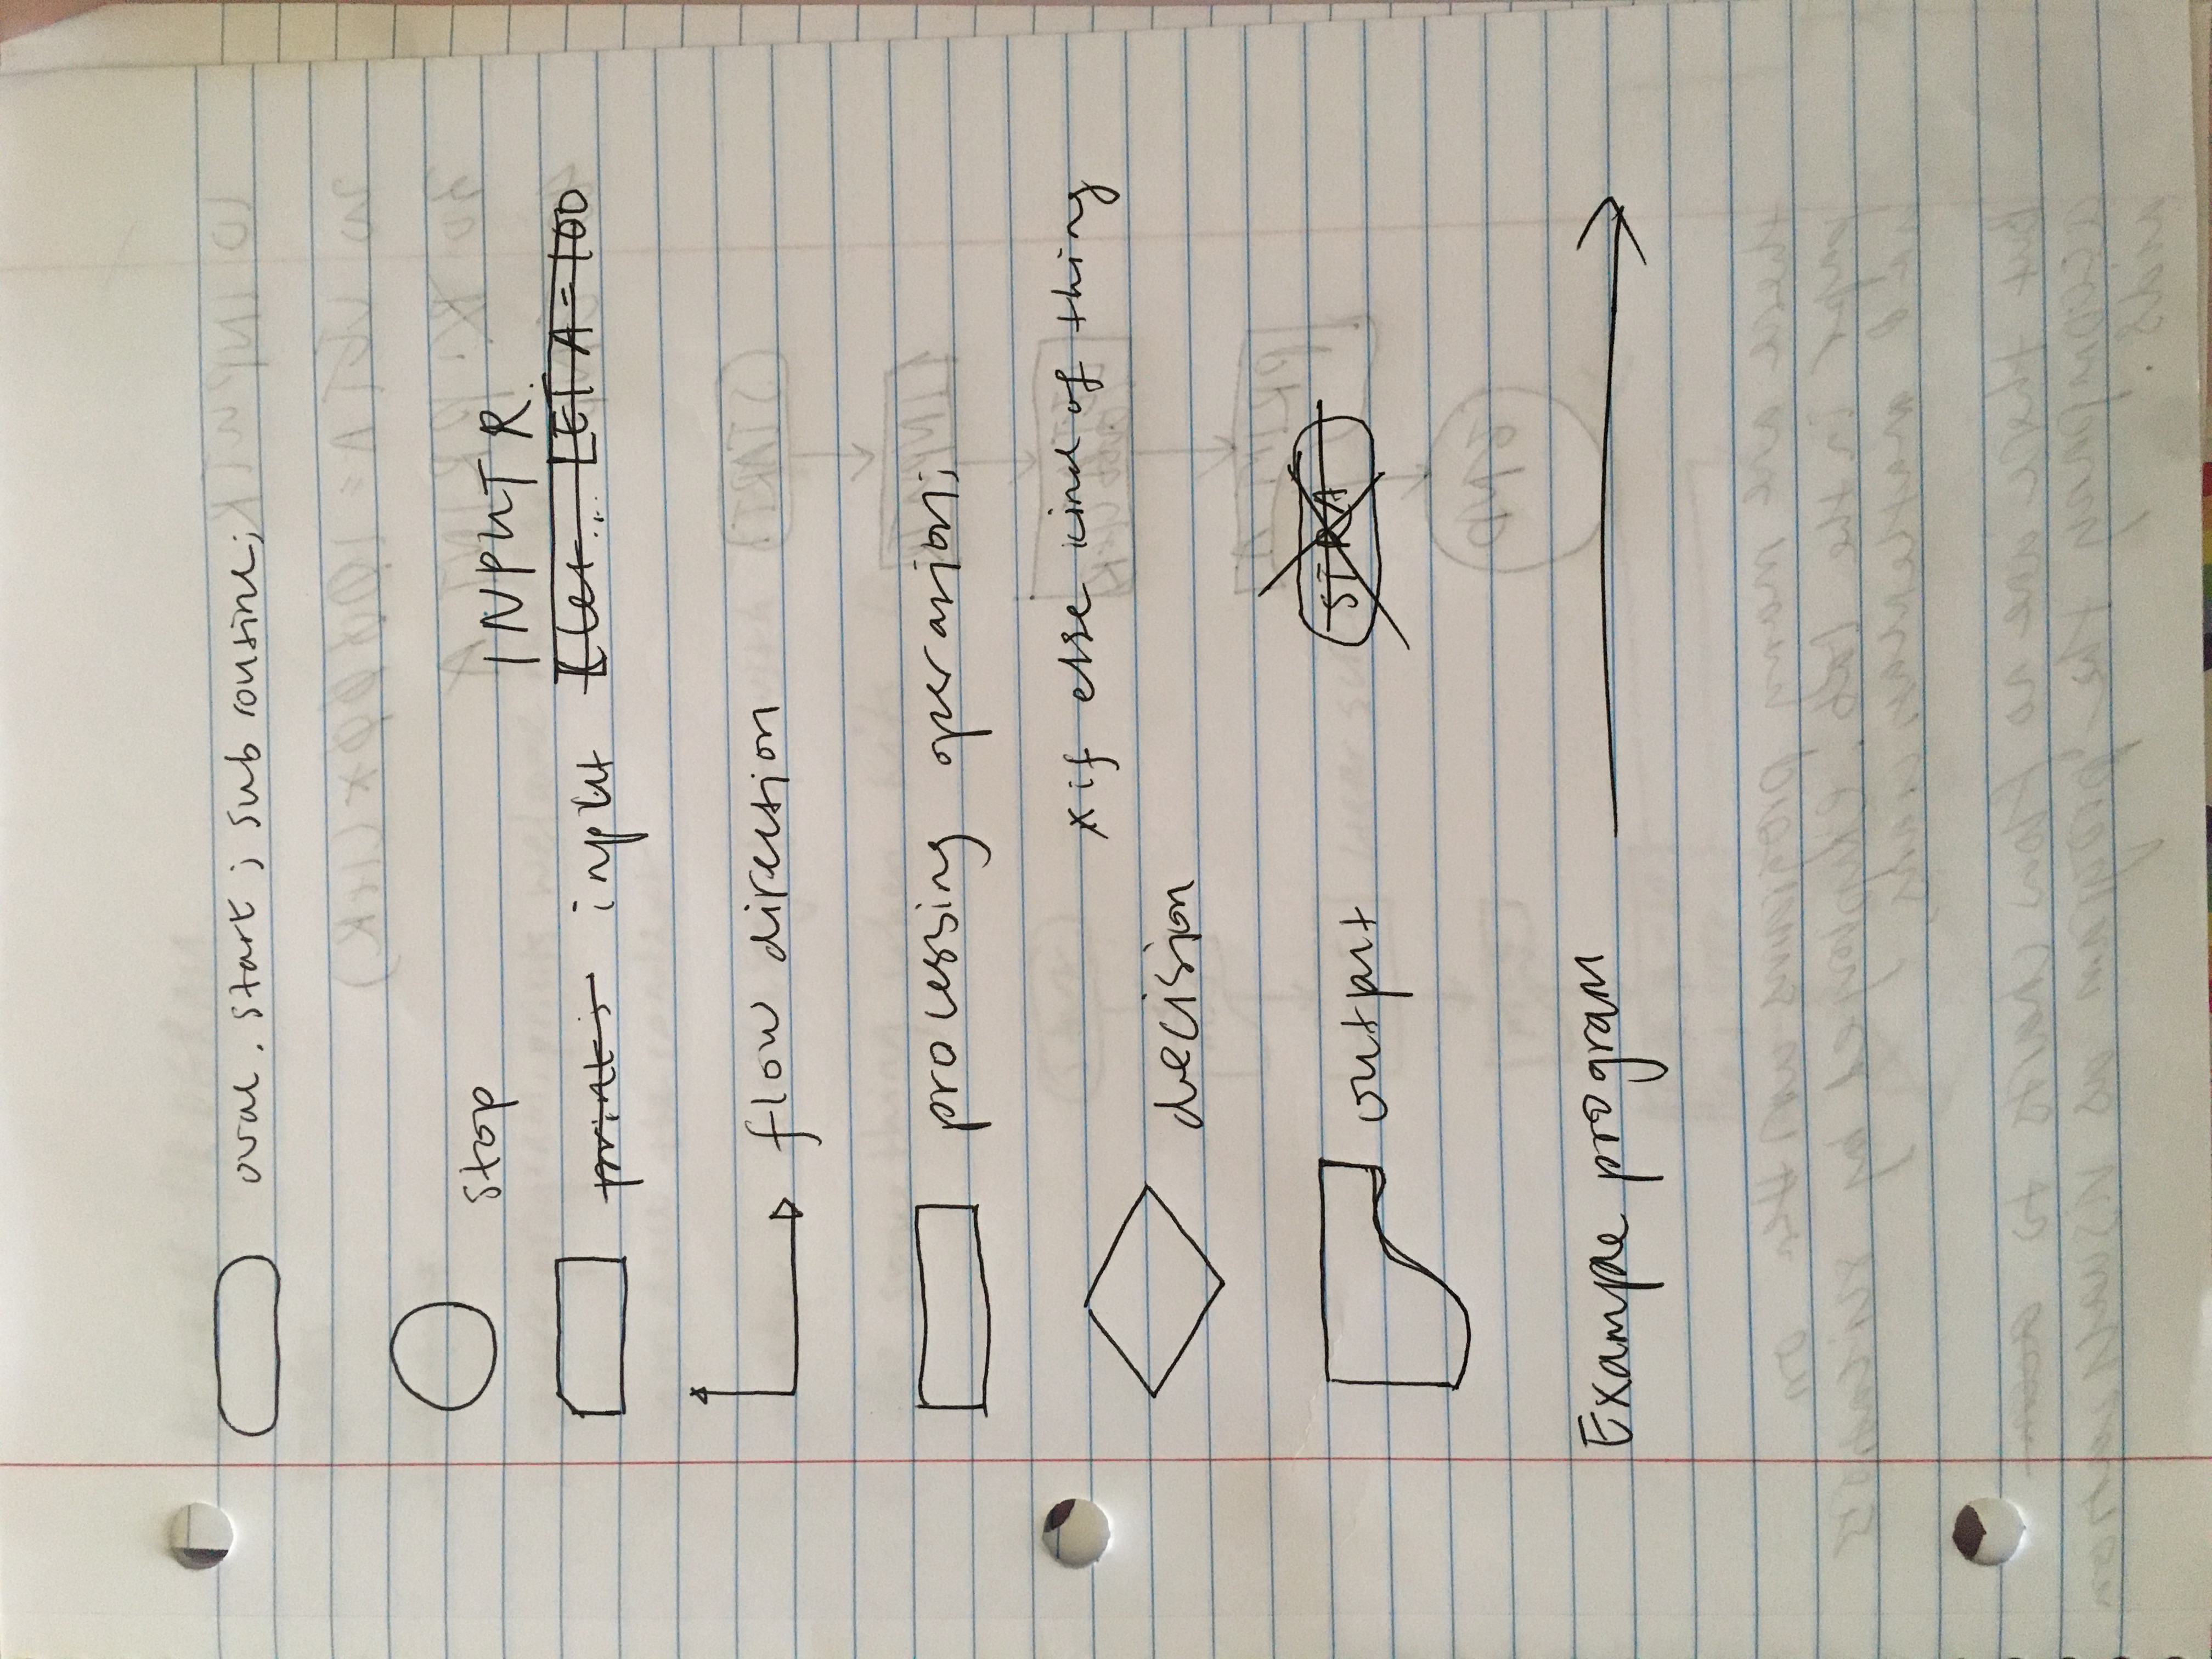 oval. start; subroutine;
stop
INPUT R.
print; input let... LET A = 100
flow direction
processing operation;
x if else kind of thing
decision
STRA
output
Example program